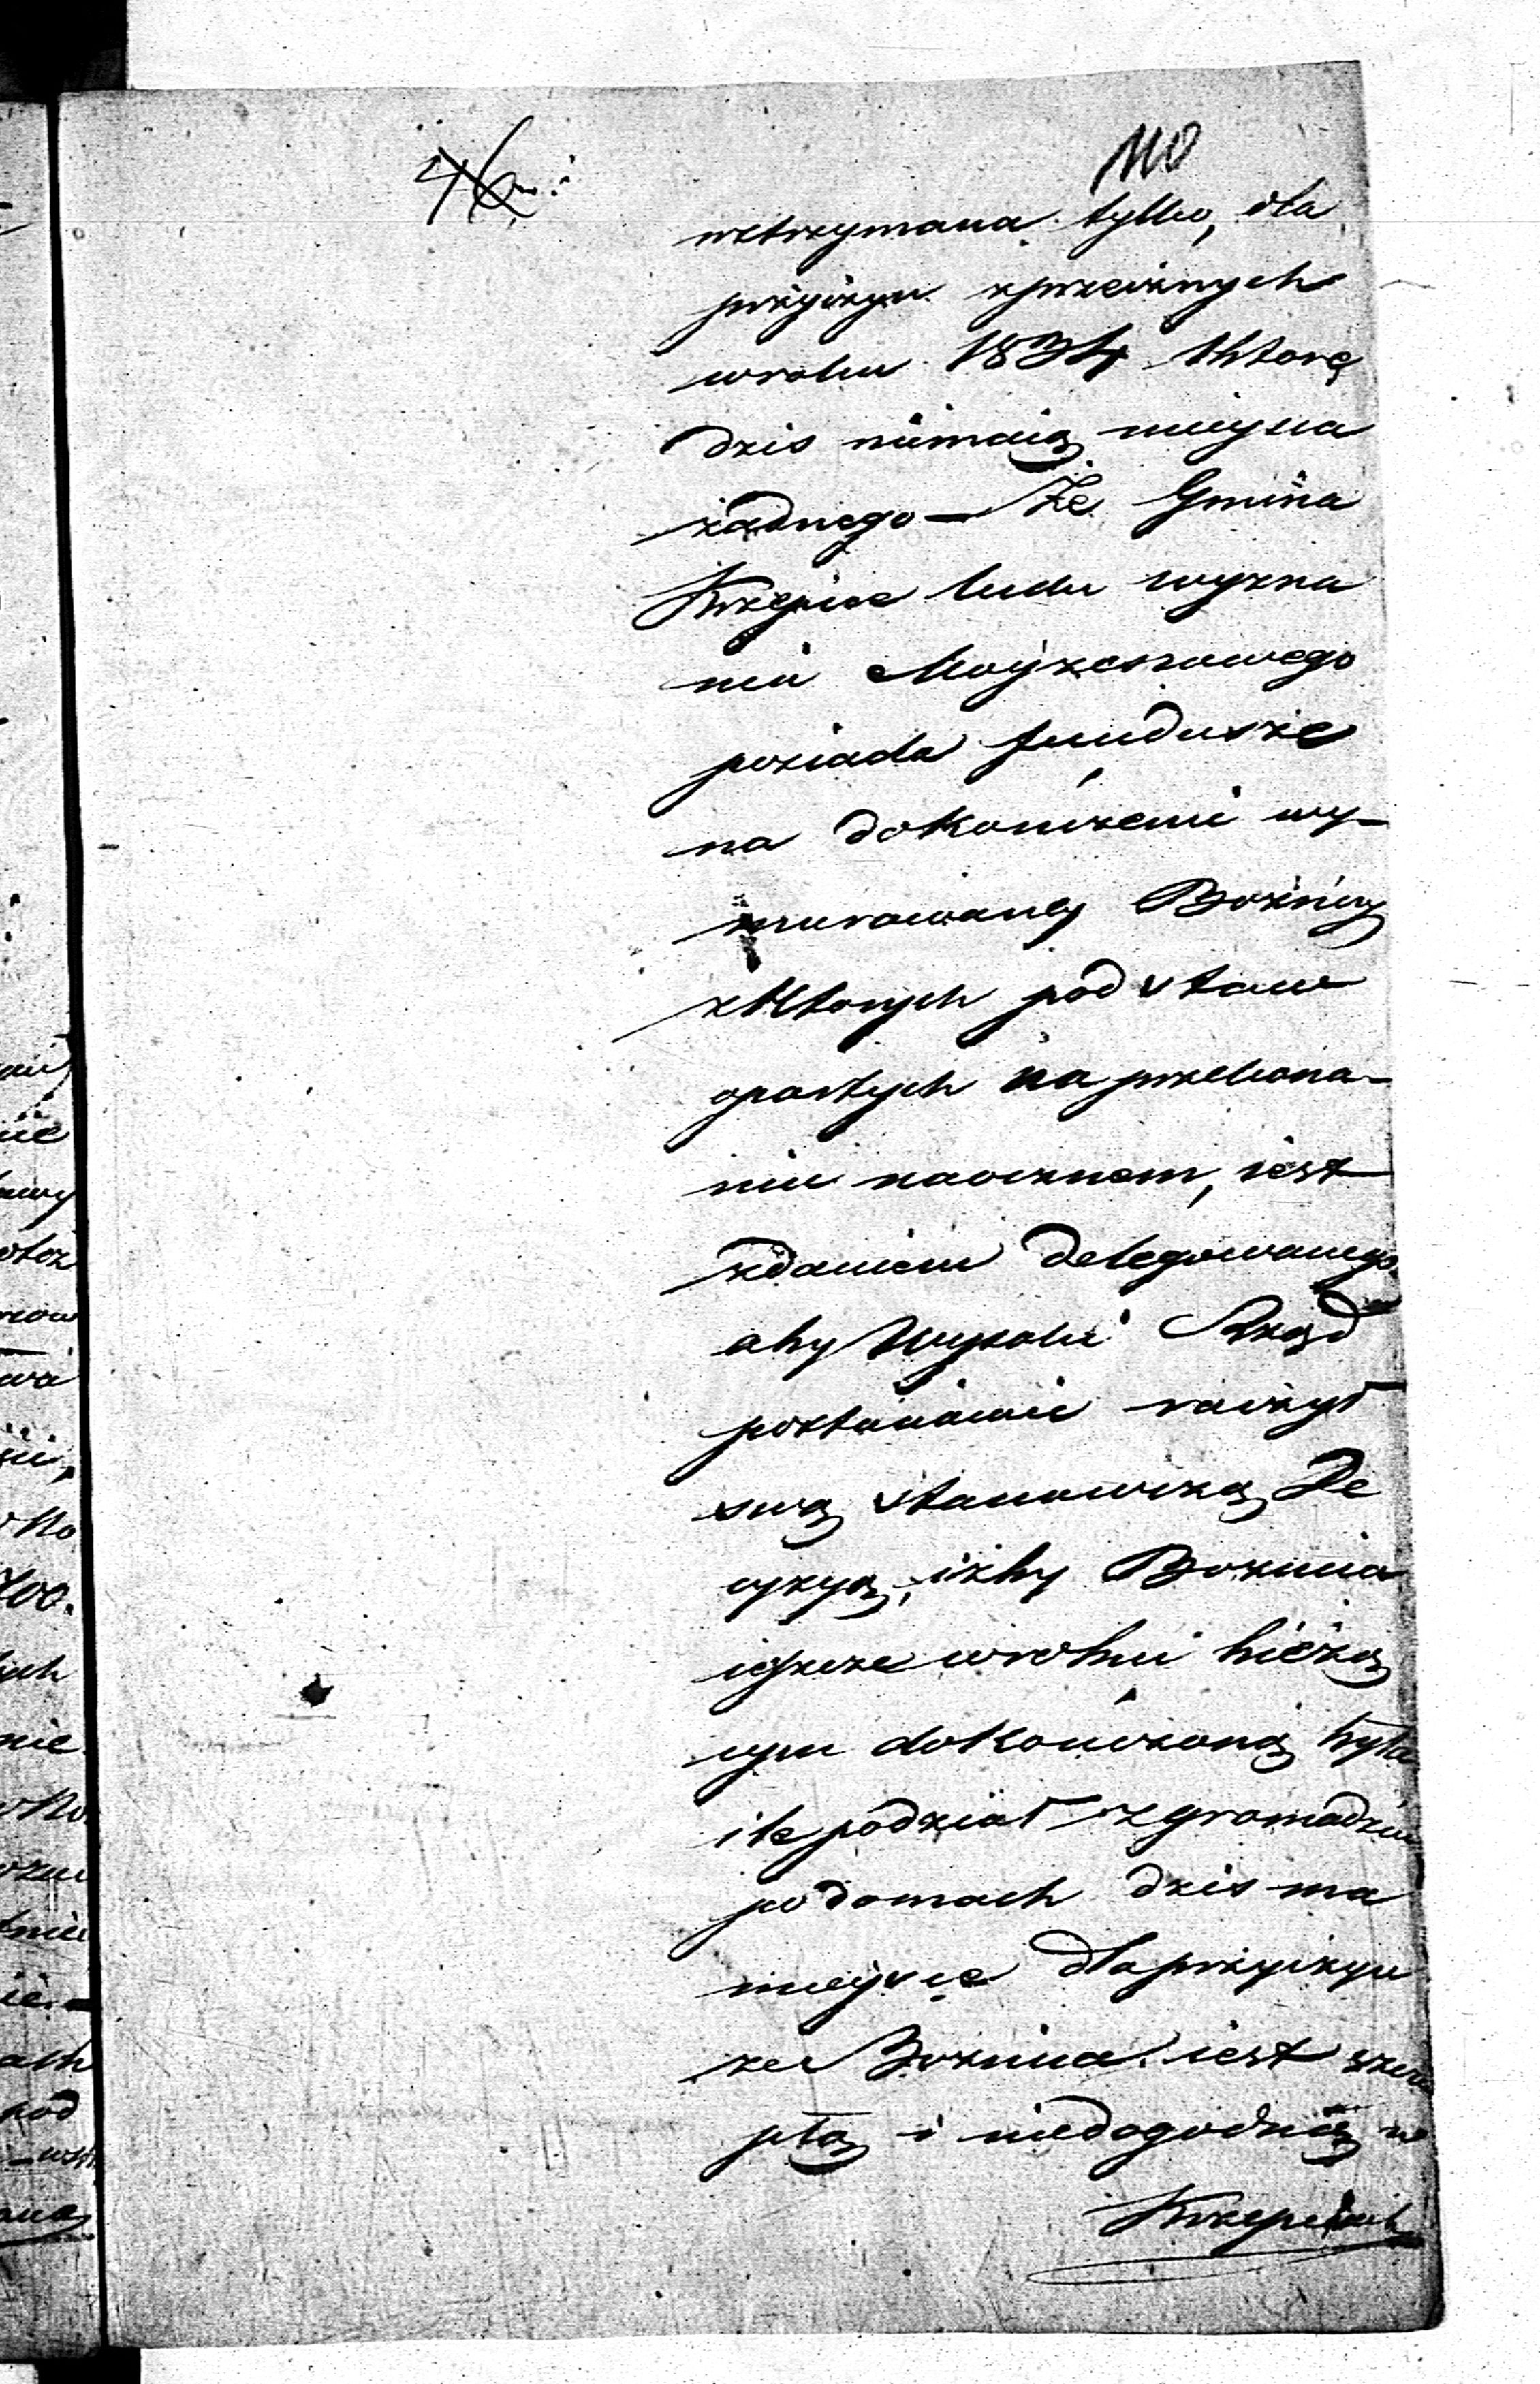 110
46
wstrzymana tylko, dla
przyczyn sprzecznych
w roku 1834 które
dzis niemaią mieysca
żadnego — Że Gmina
Krzepice ludu wyzna
nia Moyżeszowego
posiada fundusze
na dokończenie wy-
murowaney Bożnicy
z których podstaw
opartych na przekona-
niu naocznem, iest
zdaniem delegowanego
aby Wysoki Rząd
postanowić raczył
swą stanowczą De
cyzyą, izby Boznica
ieszcze w roku bieżą
cym dokończoną była
ile podział zgromadzen
po domach dzis ma
mieysce dla przyczyn
ze Boznica iest szczu
płą i niedogodną w
Krzepicach